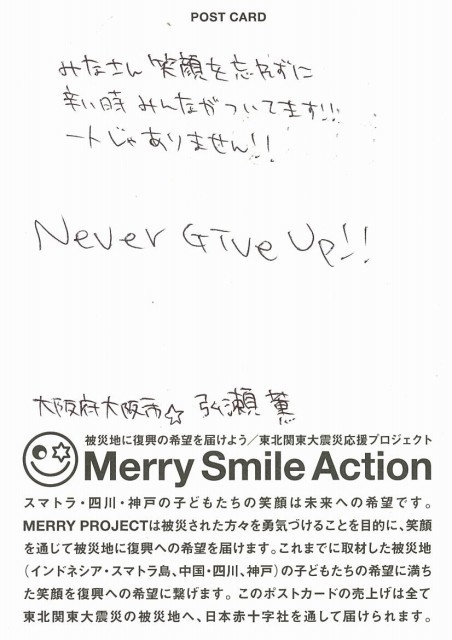 POST CARD
みなさん 笑顔を忘れずに
辛い時 みんながついてます!!
一人じゃありません!!
Never Give Up!!
大阪府大阪市☆ 弘瀬 薫
被災地に復興の希望を届けよう／東北関東大震災応援プロジェクト
Merry Smile Action
スマトラ・四川・神戸の子どもたちの笑顔は未来への希望です。
MERRY PROJECTは被災された方々を勇気づけることを目的に、笑顔
を通じて被災地に復興への希望を届けます。これまでに取材した被災地
（インドネシア・スマトラ島、中国・四川、神戸）の子どもたちの希望に満ち
た笑顔を復興への希望に繋げます。このポストカードの売上げは全て
東北関東大震災の被災地へ、日本赤十字社を通して届けられます。